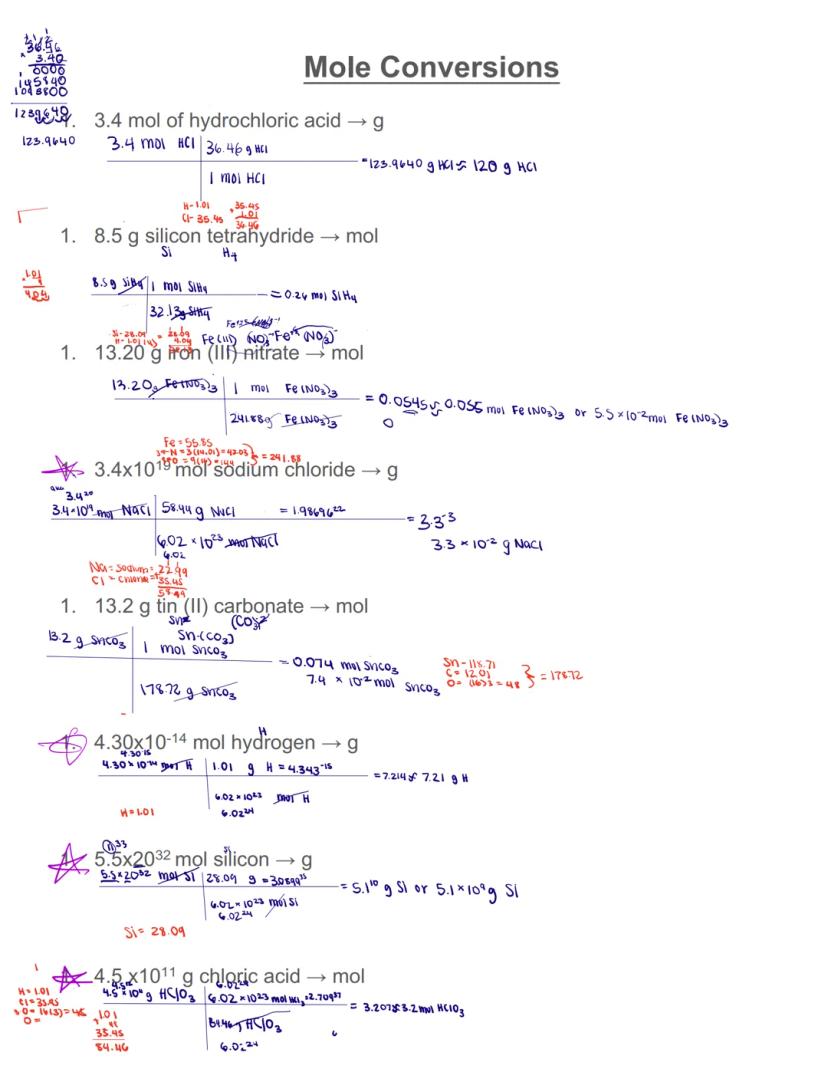 36.46
× 3.40
0000
145840
1093800
1239640
123.9640
Mole Conversions
1. 3.4 mol of hydrochloric acid → g
3.4 mol HCl | 36.46 g HCl
1 mol HCl
= 123.9640 g HCl ≈ 120 g HCl
H-1.01
Cl-35.45
+35.45
1.01
36.46
1. 8.5 g silicon tetrahydride → mol
Si H4
1.01
4.04
8.5g SiH4 | 1 mol SiH4
32.13g SiH4
= 0.26 mol SiH4
Si-28.09
H-1.01(4)
28.09
4.04
Fe(III) (NO3)- Fe+3 (NO3)-
1. 13.20 g iron (III) nitrate → mol
13.20g Fe(NO3)3 | 1 mol Fe(NO3)3
241.88g Fe(NO3)3
= 0.0545 ≈ 0.055 mol Fe(NO3)3 or 5.5 ×10-2 mol Fe(NO3)3
0
Fe = 55.85
N = 3(14.01) = 42.03
O = 9(16) = 144
= 241.88
1. 3.4x10^19 mol sodium chloride → g
3.4^20
3.4×10^19 mol NaCl | 58.44 g NaCl = 1.98696^22
6.02 × 10^23 mol NaCl
6.02
= 3.3^-3
3.3 × 10^-2 g NaCl
Na = sodium = 22.99
Cl = chlorine = +35.45
1. 13.2 g tin (II) carbonate → mol
Sn+2 (CO3)-2
Sn-(CO3)
13.2 g SnCO3 | 1 mol SnCO3
178.72 g SnCO3
= 0.074 mol SnCO3
7.4 × 10^-2 mol SnCO3
Sn-118.71
C = 12.01
O = (16)3 = 48
= 178.72
H
1. 4.30x10^-14 mol hydrogen → g
4.30^-15
4.30 × 10^-14 mol H | 1.01 g H = 4.343^-15
6.02 × 10^23 mol H
6.02^24
= 7.214 ≈ 7.21 g H
H = 1.01
33
Si
1. 5.5x20^32 mol silicon → g
5.5×20^32 mol Si | 28.09 g
6.02 × 10^23 mol Si
6.02^24
= 5.1^10 g Si or 5.1 × 10^9 g Si
Si = 28.09
1
1. 4.5 x10^11 g chloric acid → mol
4.5^12
6.02^24
4.5 × 10^11 g HClO3 | 6.02 × 10^23 mol = 2.709^37
84.46 g HClO3
6.02^24
= 3.207 ≈ 3.2 mol HClO3
H = 1.01
Cl = 35.45
O = 16(3) = 48
O =
1.01
35.45
84.46